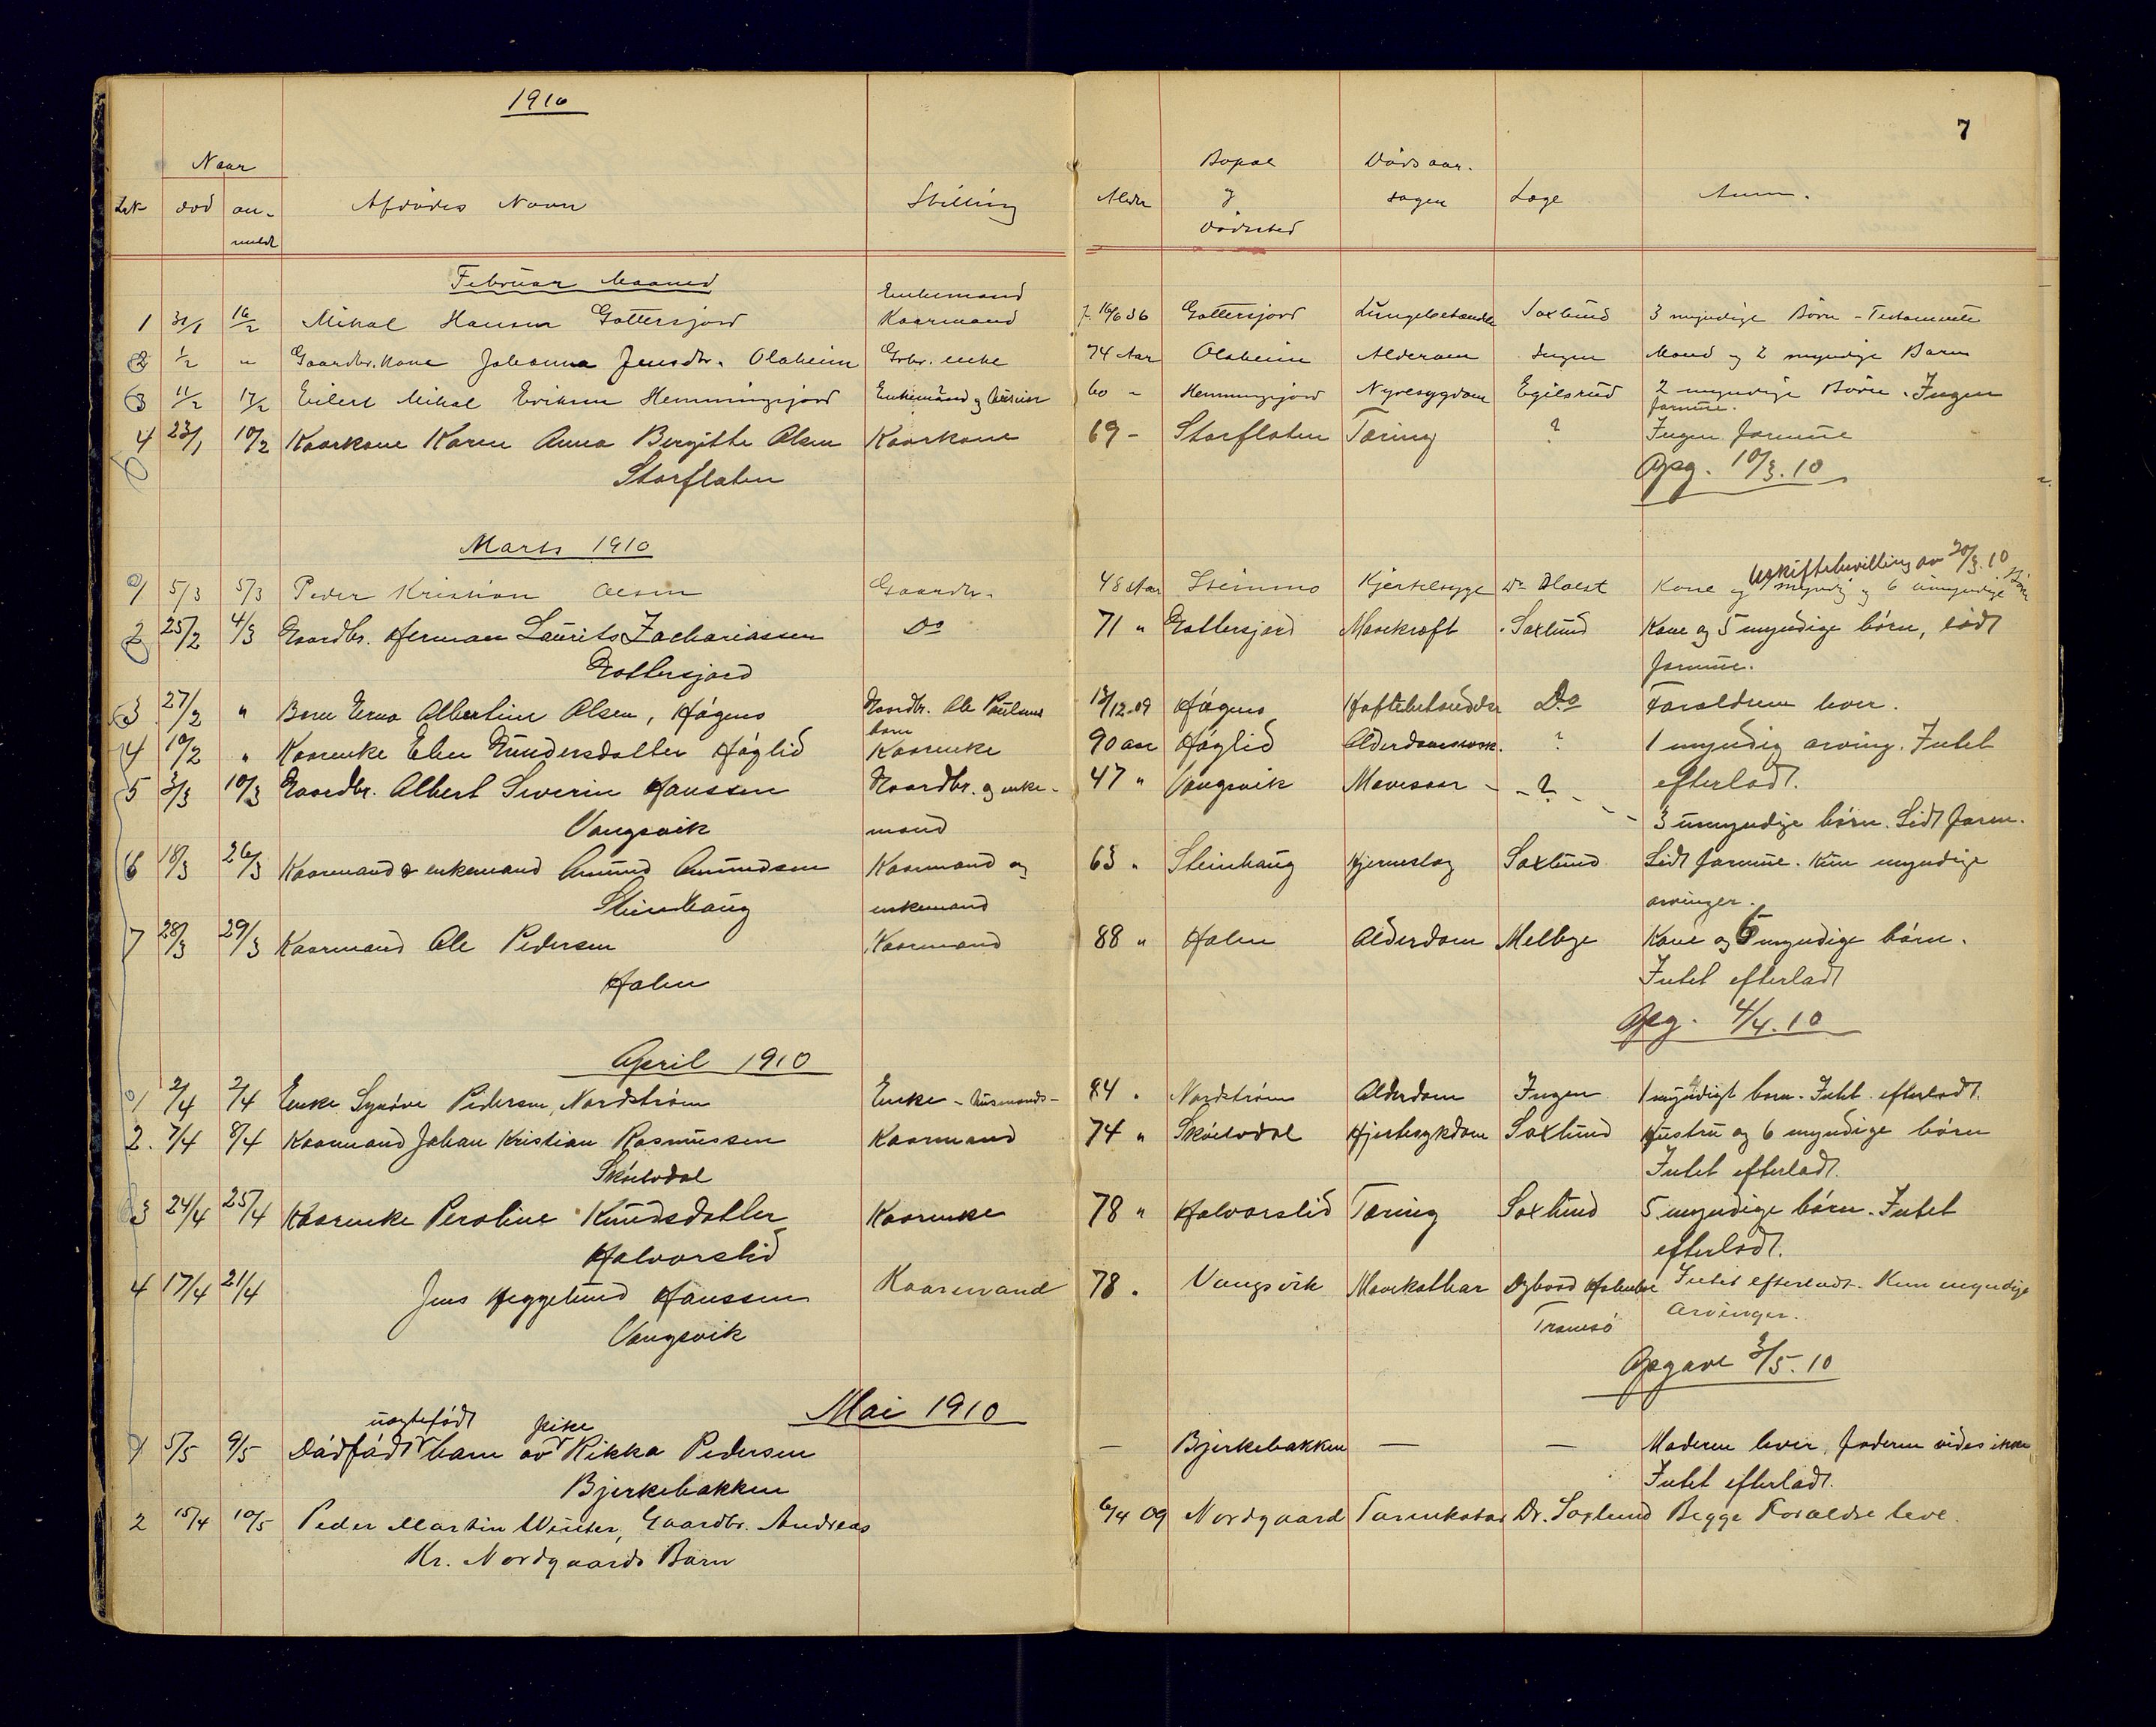 1910
7
Naar
Bopæl
Dødsaar-
død
an-
meldt
Afdødes Navn
Stilling
Alder
og
dødssted
sagen
Læge
Anm.
Februar Maaned
Enkemand
1 31/1 16/2 Mikal Hansen Gottersjord Kaarmand f. 16/6 36 Gottersjord Lungebetændelse Saxlund 3 myndige Børn - Testamente
2 1/2 " Gaardbr. kone Johanna Jensdtr. Olaheim Grbr. enke 74 Aar Olaheim Alderdom Ingen Mand og 2 myndige Barn
3 11/2 17/2 Eilert Mikal Eriksen Hemmingsjord Enkemand og 60 " Hemmingsjord Nyresygdom Egilsrud 2 myndige Børn. Ingen
formue.
4 23/1 10/2 Kaarkone Karen Anna Bergitte Olsen Kaarkone 69 - Storflaten Tæring ? Ingen formue
Storflaten
Opg. 10/3.10
Marts 1910
Uskiftebevilling av 20/3.10
1 5/3 5/3 Peder Kristian Olsen Gaardbr. 48 Aar Steinmo Kjertelsyge Dr Holst Kone og 1 myndig og 6 umyndige Børn
2 25/2 4/3 Gaardbr. Herman Laurits Zachariassen Do 71 " Gottersjord Mavekræft Saxlund Kone og 5 myndige børn, lidt
Gottersjord
formue.
3 27/2 " Barn Erna Albertine Olsen, Høgmo Gaardbr. Ole Paulsens 13/12-09 Høgmo Hoftebetændelse Do Forældrene lever.
barn
4 10/2 " Kaarenke Elen Gundersdatter Høglid Kaarenke 90 aar Høglid Alderdomssvak. ? 1 myndig arving. Intet
5 3/3 10/3 Gaardbr. Albert Severin Hanssen Gaardbr. og enke- 47 " Vangsvik Mavesaar - - ? - efterladt.
Vangsvik mand
3 umyndige børn. Lidt form.
6 18/3 26/3 Kaarmand & enkemand Amund Amundsen Kaarmand og 63 " Steinhaug Hjerneslag Saxlund Lidt formue. Kun myndige
Steinhaug enkemand
arvinger.
7 28/3 29/3 Kaarmand Ole Pedersen Kaarmand 88 " Holen Alderdom Melbye Kone og 6 myndige børn.
Holen
Intet efterladt
Opg. 4/4.10
April 1910
1 2/4 2/4 Enke Synøve Pedersen, Nordstrøm Enke - husmands- 84 " Nordstrøm Alderdom Ingen 1 myndigt barn. Intet efterladt.
2. 7/4 8/4 Kaarmand Johan Kristian Rasmussen Kaarmand 74 " Skøelvdal Hjertesykdom Saxlund Hustru og 6 myndige børn
Skøelvdal
Intet efterladt.
3 24/4 25/4 Kaarenke Peroline Knudsdatter Kaarenke 78 " Halvorslid Tæring Saxlund 5 myndige børn. Intet
Halvorslid
efterladt.
4 17/4 21/4 Jens Heggelund Hanssen Kaarmand 78 " Vangsvik Mavekathar Holmboe Intet efterladt. Kun myndige
Vangsvik
Tromsø
Arvinger.
Opgave 3/5.10
Mai 1910
uægtefødt pike
1 5/5 9/5 Dødfødt barn av Rikka Pedersen — Bjerkebakken — — Moderen lever, faderen vides ikke
Bjerkebakken
Intet efterladt.
2 15/4 10/5 Peder Martin Winter, Gaardbr. Andreas 6/4 09 Nordgaard Tarmkatar Dr. Saxlund Begge Forældre leve.
Kr. Nordgaards Barn